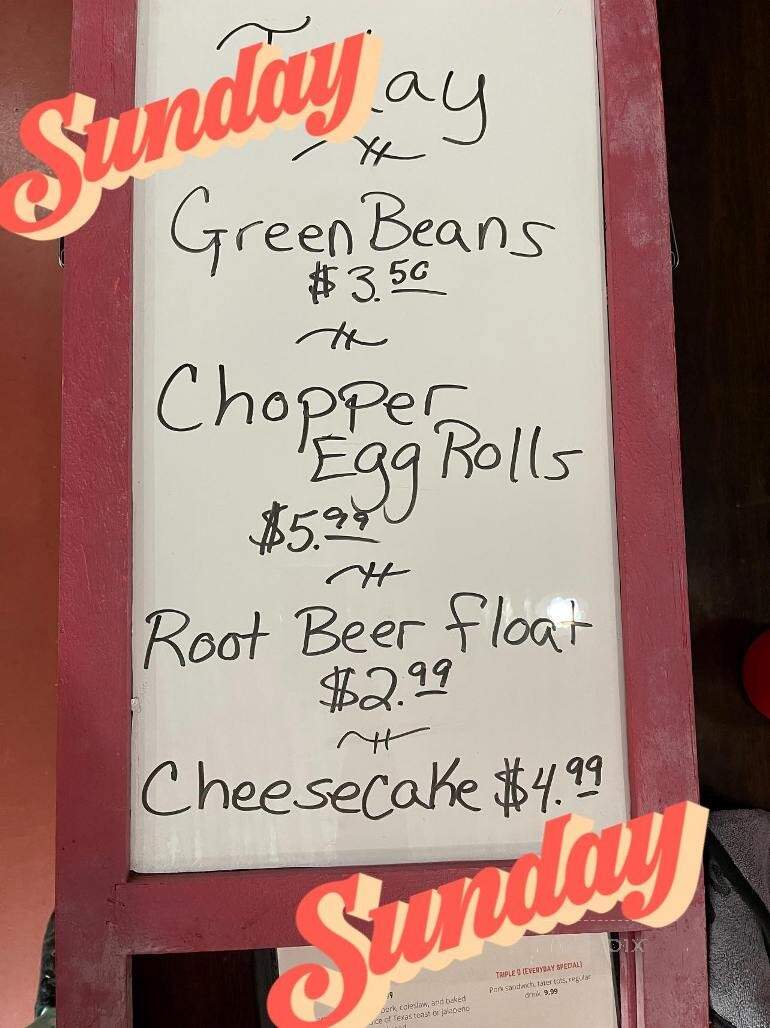 Sunday
Green Beans
$3.50
Chopper
Egg Rolls
$5.99
Root Beer float
$2.99
Cheesecake $4.99
Sunday
TRIPLE D (EVERYDAY SPECIAL)
Pork sandwich, tater tots, regular
drink 9.99
pork, coleslaw, and baked
of Texas toast or jalapeno